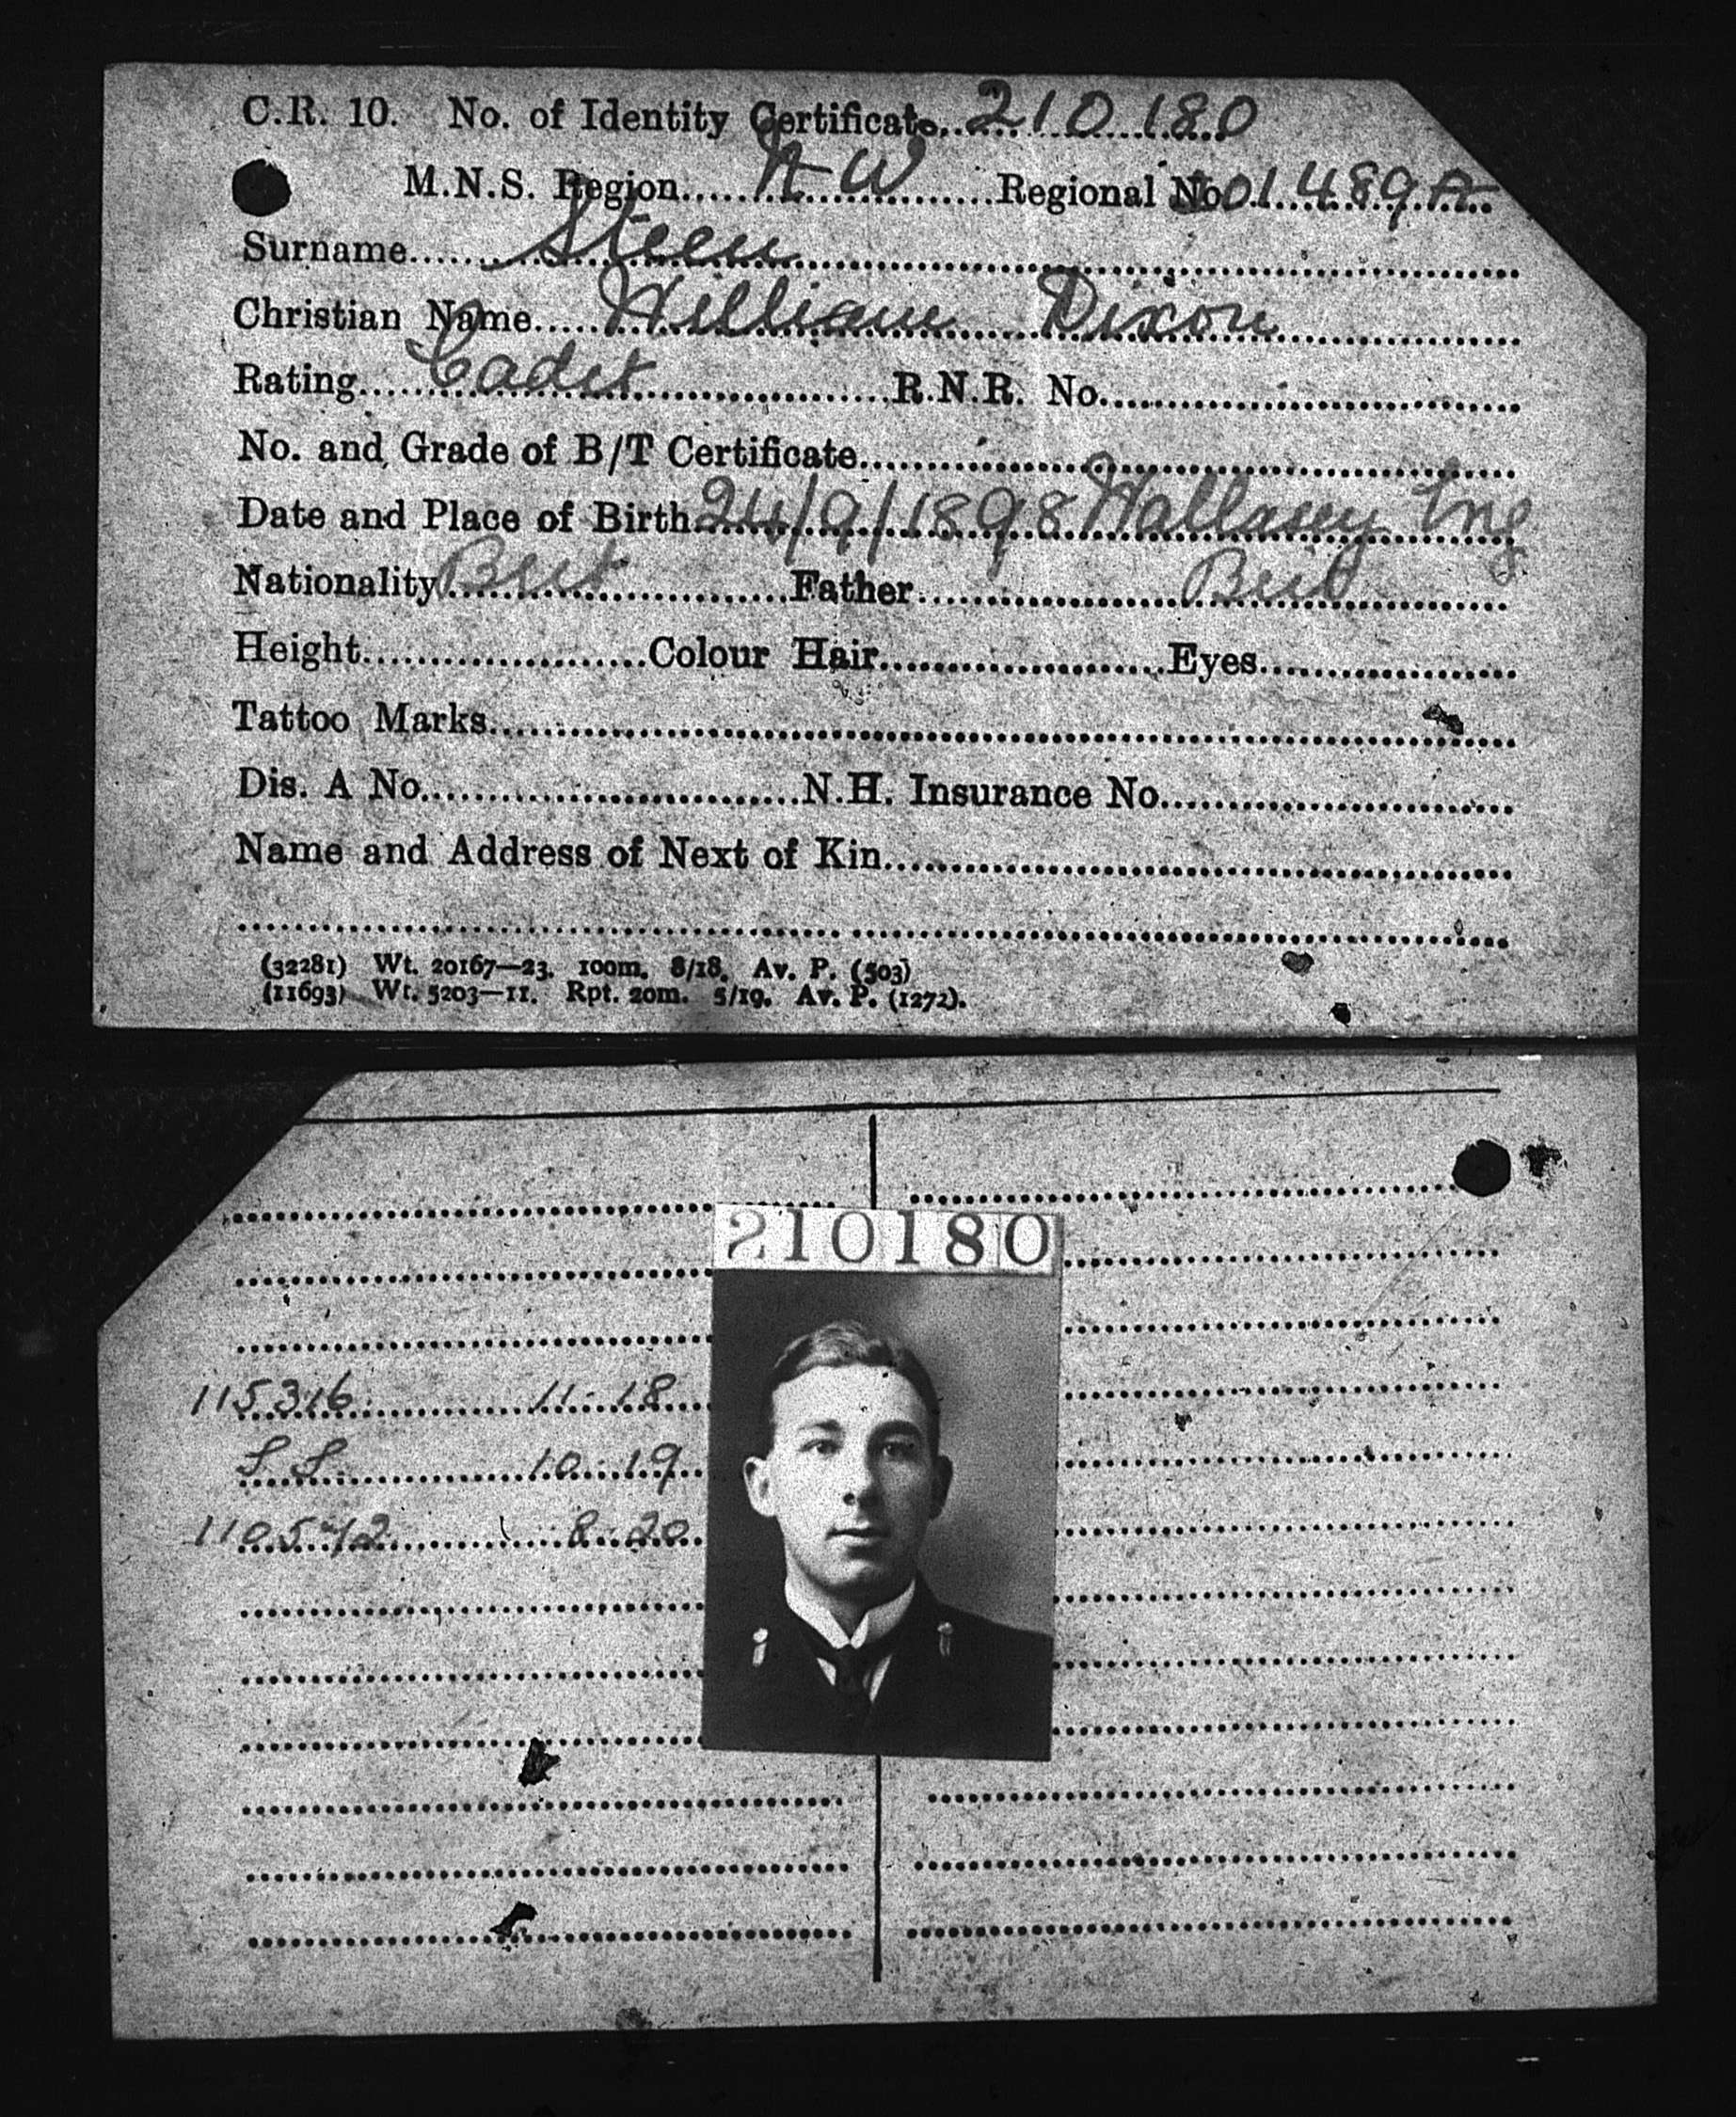 C.R. 10. No. of Identity Certificate 210180
M.N.S. Region N W Regional No 01489A
Surname Steen
Christian Name William Dixon
Rating Cadet R.N.R. No.
No. and Grade of B/T Certificate
Date and Place of Birth 24/9/1898 Wallasey Eng
Nationality Brit Father Brit
Height Colour Hair Eyes
Tattoo Marks
Dis. A No. N.H. Insurance No.
Name and Address of Next of Kin
(32281) Wt. 20167—23. 100m. 8/18. Av. P. (503)
(11693) Wt. 5203—11. Rpt. 20m. 5/19. Av. P. (1272).
210180
115316 11.18
S S. 10.19
8.20